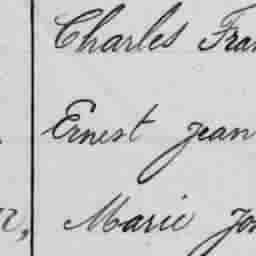 Charles Fran
Ernest Jean
Marie Jo